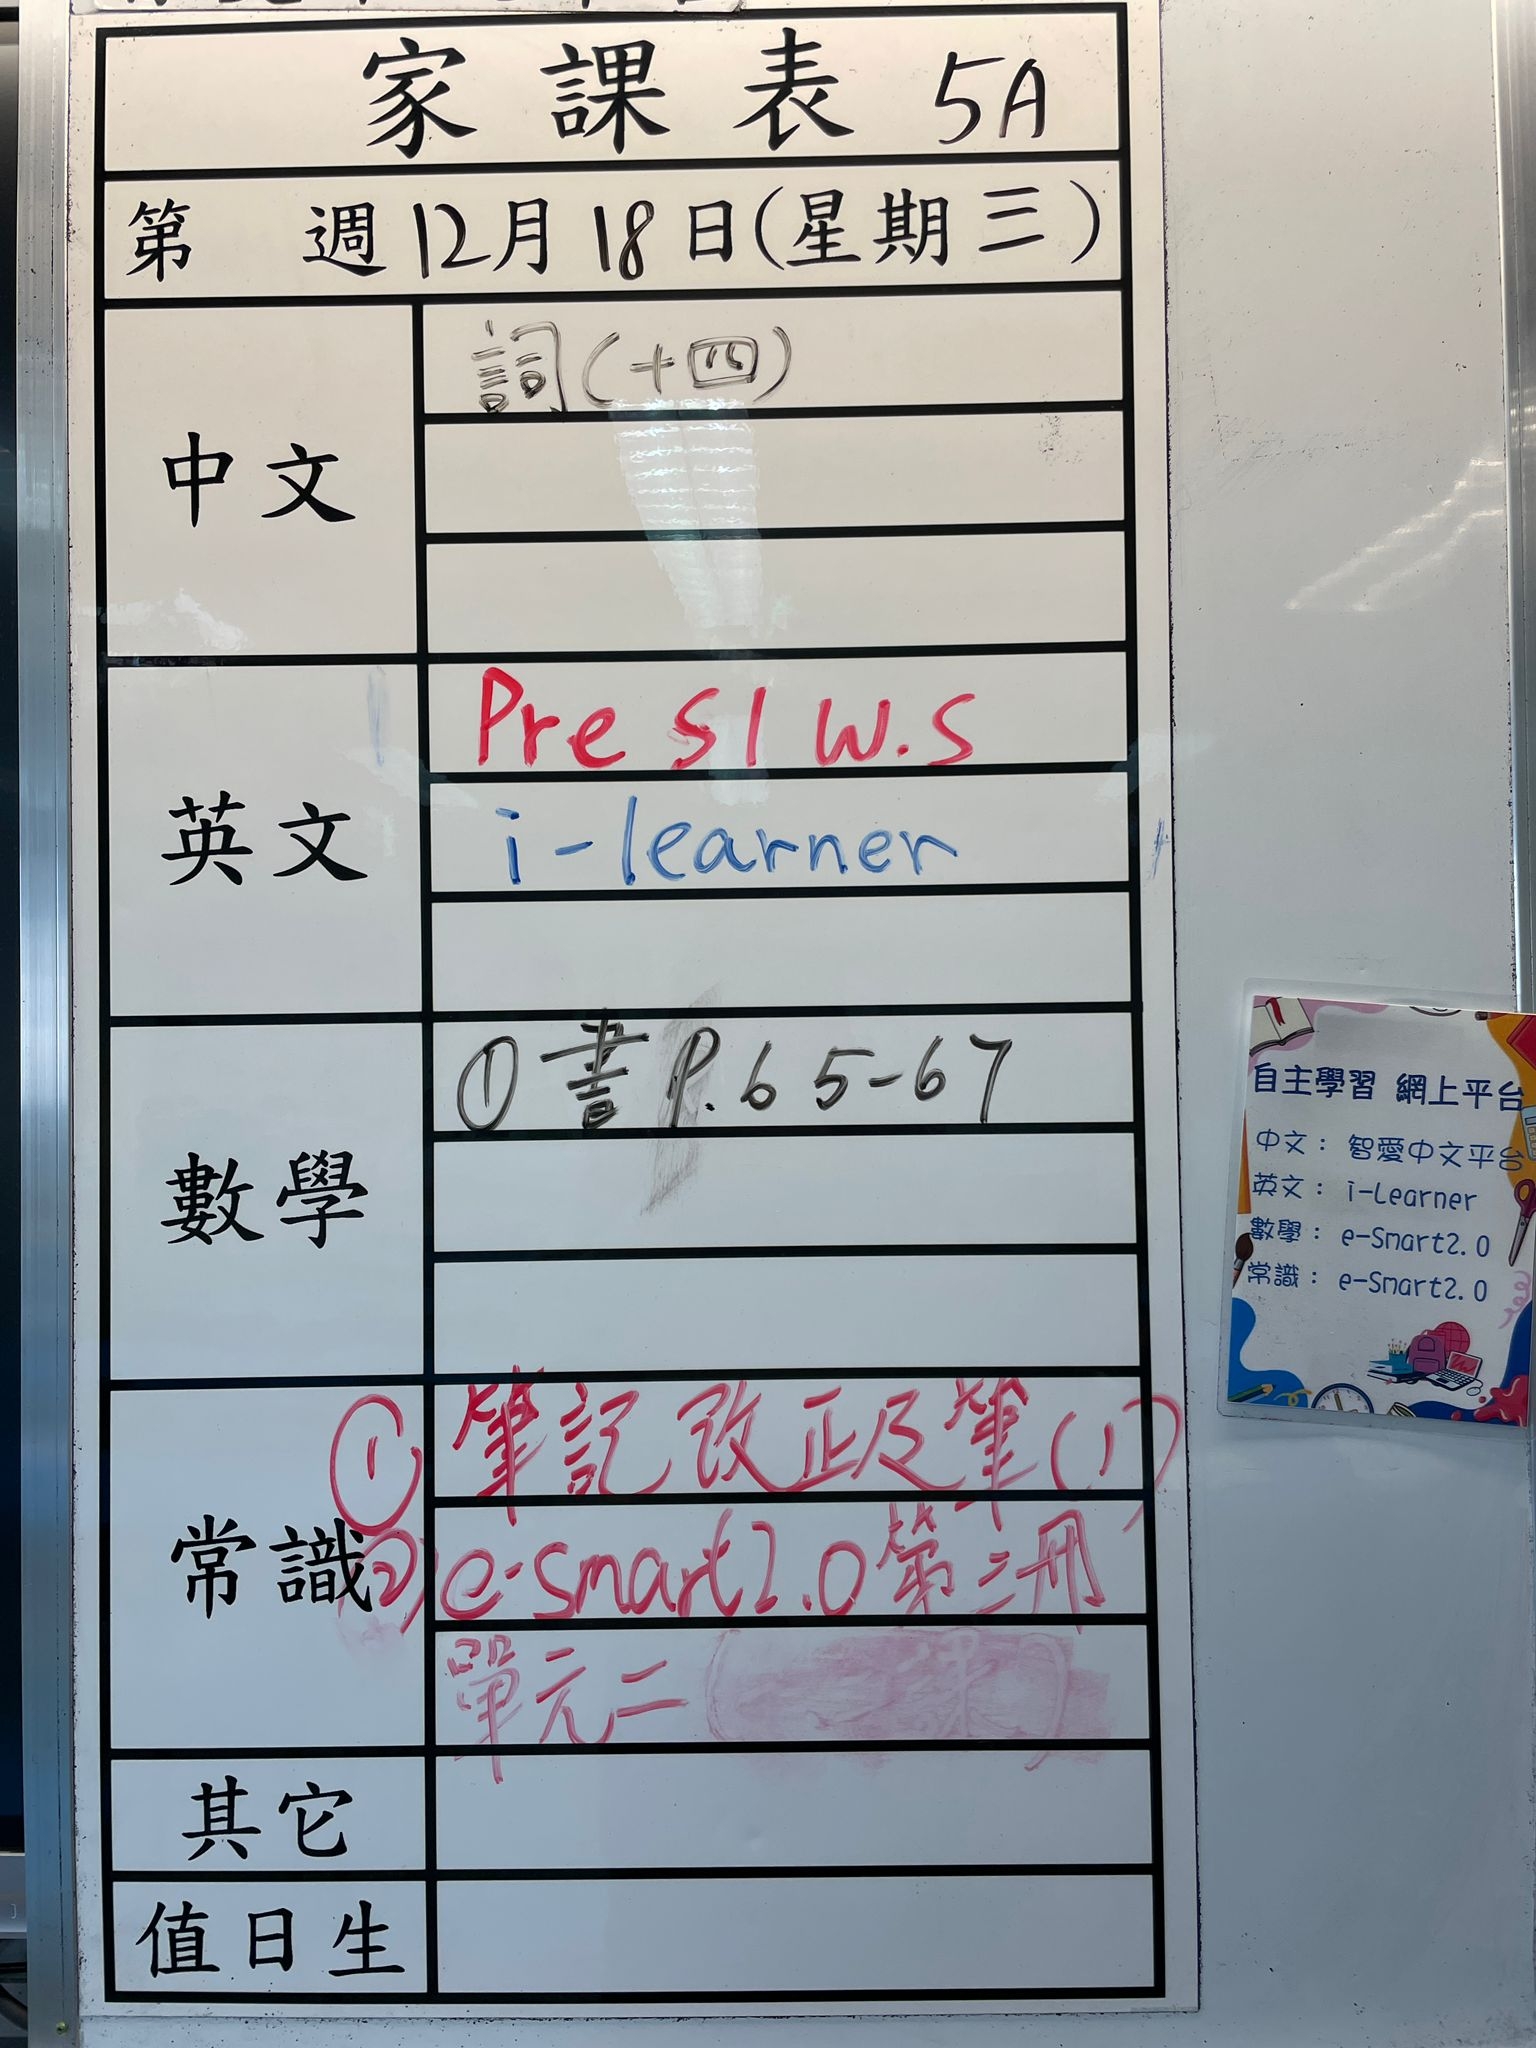 家課表 5A
第 週 12月18日(星期三)
中文
詞(十四)
英文
Pre S1 W.S
i-learner
數學
① 書 P.65-67
常識
① 筆記改正及筆(1)
② e-smart2.0 第三冊
單元二
其它
值日生
自主學習 網上平台
中文： 智愛中文平台
英文： i-Learner
數學： e-Smart2.0
常識： e-Smart2.0